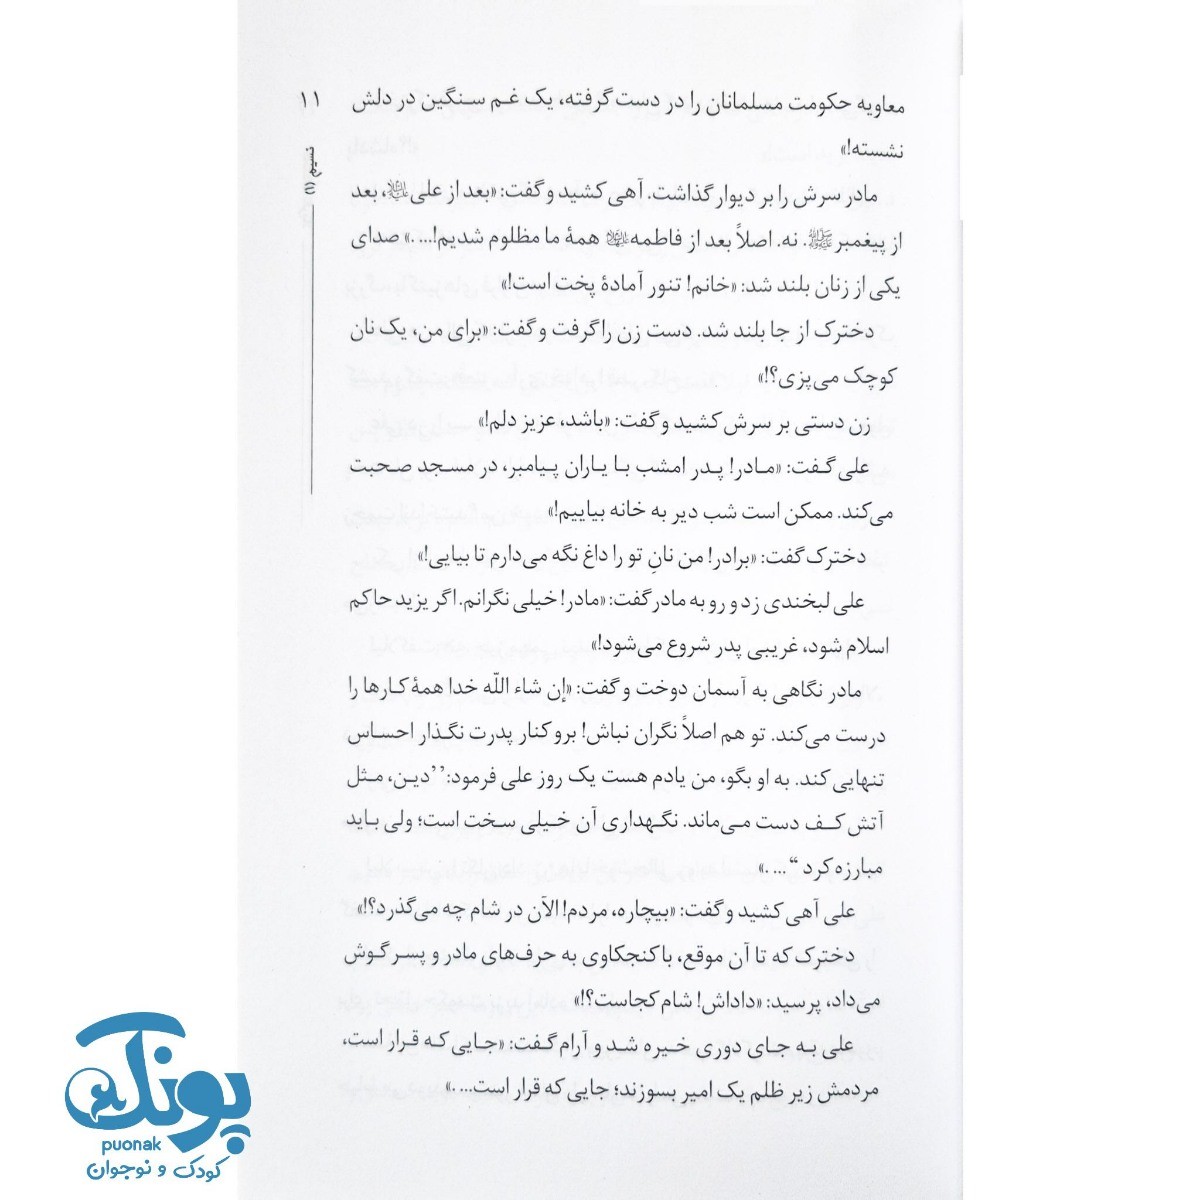 معاویه حکومت مسلمانان را در دست گرفته، یک غم سنگین در دلش
۱۱
نشسته!»
نسیم (۱)
مادر سرش را بر دیوار گذاشت. آهی کشید و گفت: «بعد از علی علیه‌السلام، بعد
از پیغمبر ﷺ. نه. اصلاً بعد از فاطمه علیهاالسلام همهٔ ما مظلوم شدیم!... .» صدای
یکی از زنان بلند شد: «خانم! تنور آمادهٔ پخت است!»
دخترک از جا بلند شد. دست زن را گرفت و گفت: «برای من، یک نان
کوچک می‌پزی؟!»
زن دستی بر سرش کشید و گفت: «باشد، عزیز دلم!»
علی گفت: «مادر! پدر امشب با یاران پیامبر، در مسجد صحبت
می‌کند. ممکن است شب دیر به خانه بیاییم!»
دخترک گفت: «برادر! من نانِ تو را داغ نگه می‌دارم تا بیایی!»
علی لبخندی زد و رو به مادر گفت: «مادر! خیلی نگرانم. اگر یزید حاکم
اسلام شود، غریبی پدر شروع می‌شود!»
مادر نگاهی به آسمان دوخت و گفت: «إن شاء اللّه خدا همهٔ کارها را
درست می‌کند. تو هم اصلاً نگران نباش! برو کنار پدرت نگذار احساس
تنهایی کند. به او بگو، من یادم هست یک روز علی فرمود: ’’دین، مثل
آتش کف دست می‌ماند. نگهداری آن خیلی سخت است؛ ولی باید
مبارزه کرد“ ... .»
علی آهی کشید و گفت: «بیچاره، مردم! الآن در شام چه می‌گذرد؟!»
دخترک که تا آن موقع، با کنجکاوی به حرف‌های مادر و پسر گوش
می‌داد، پرسید: «داداش! شام کجاست؟!»
علی به جای دوری خیره شد و آرام گفت: «جایی که قرار است،
مردمش زیر ظلم یک امیر بسوزند؛ جایی که قرار است... .»
پونک
puonak
کودک و نوجوان